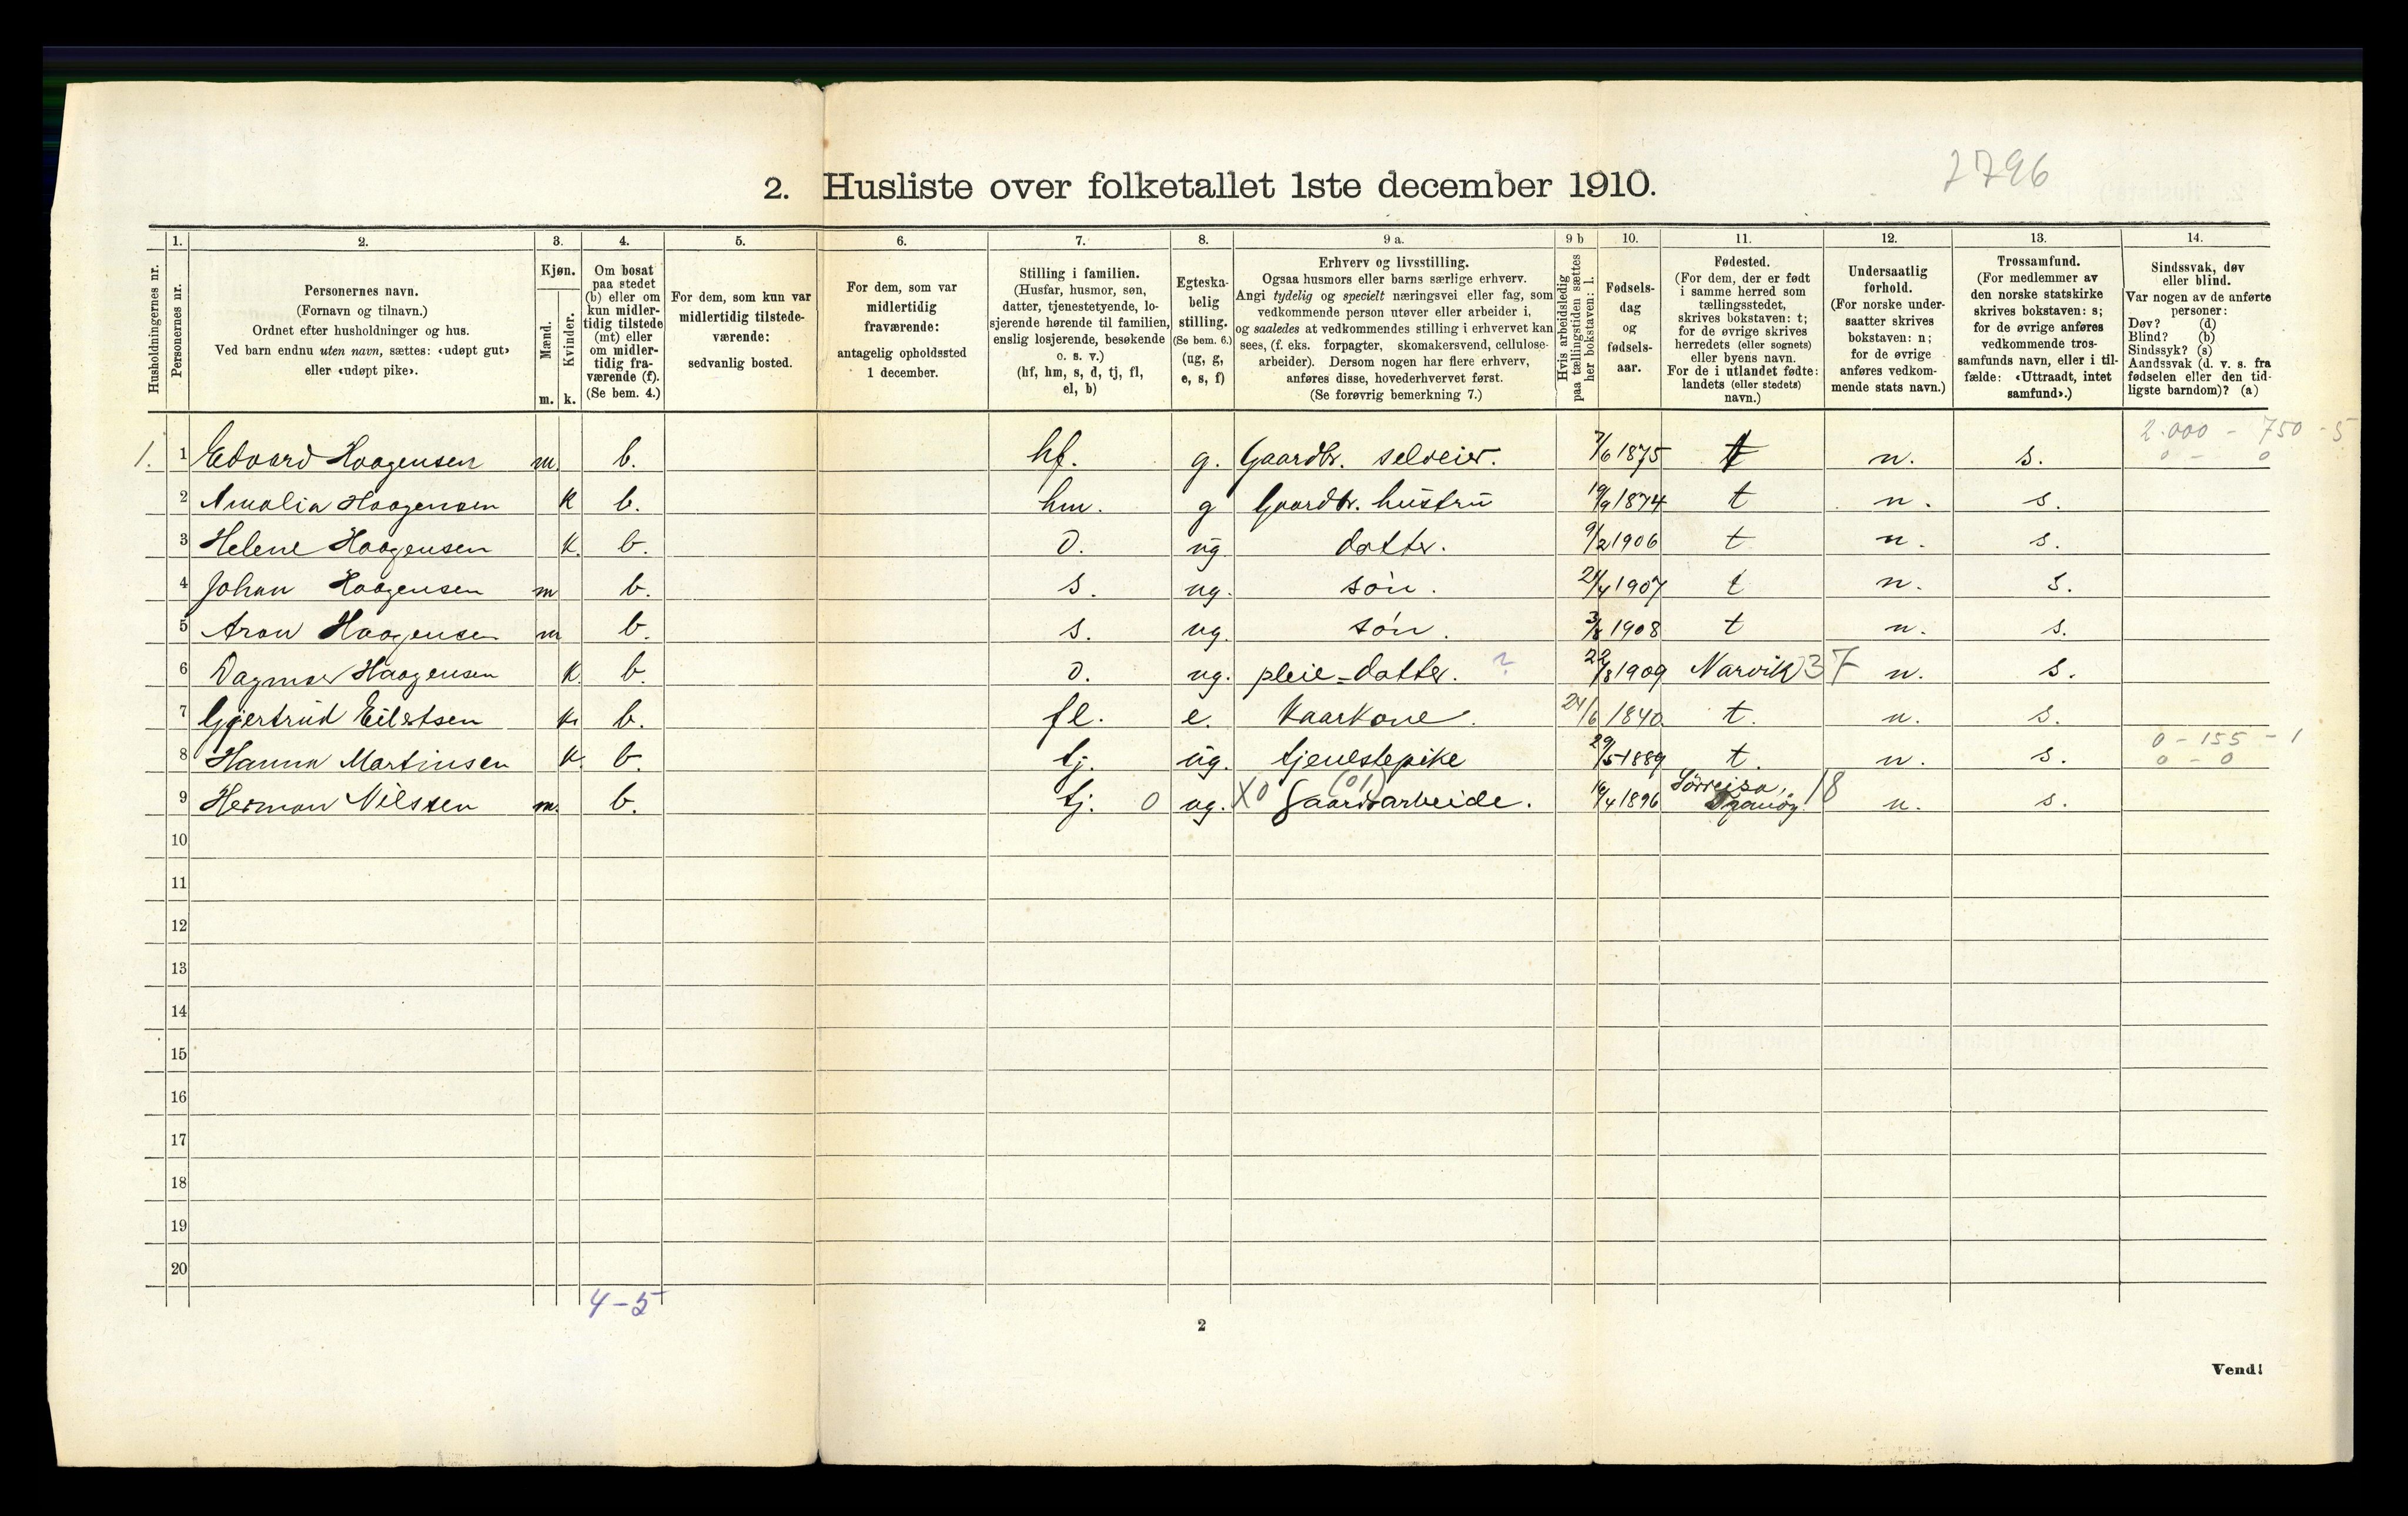 2796
2. Husliste over folketallet 1ste december 1910.
1. 2. 3. 4. 5. 6. 7. 8. 9 a. 9 b 10. 11. 12. 13. 14.
Husholdningernes nr.
Personernes nr.
Personernes navn.
(Fornavn og tilnavn.)
Ordnet efter husholdninger og hus.
Ved barn endnu uten navn, sættes: «udøpt gut»
eller «udøpt pike».
Kjøn.
Mænd.
Kvinder.
m. k.
Om bosat
paa stedet
(b) eller om
kun midler-
tidig tilstede
(mt) eller
om midler-
tidig fra-
værende (f).
(Se bem. 4.)
For dem, som kun var
midlertidig tilstede-
værende:
sedvanlig bosted.
For dem, som var
midlertidig
fraværende:
antagelig opholdssted
1 december.
Stilling i familien.
(Husfar, husmor, søn,
datter, tjenestetyende, lo-
sjerende hørende til familien,
enslig losjerende, besøkende
o. s. v.)
(hf, hm, s, d, tj, fl,
el, b)
Egteska-
belig
stilling.
(Se bem. 6.)
(ug, g,
e, s, f)
Erhverv og livsstilling.
Ogsaa husmors eller barns særlige erhverv.
Angi tydelig og specielt næringsvei eller fag, som
vedkommende person utøver eller arbeider i,
og saaledes at vedkommendes stilling i erhvervet kan
sees, (f. eks. forpagter, skomakersvend, cellulose-
arbeider). Dersom nogen har flere erhverv,
anføres disse, hovederhvervet først.
(Se forøvrig bemerkning 7.)
Hvis arbeidsledig
paa tællingstiden sættes
her bokstaven: l.
Fødsels-
dag
og
fødsels-
aar.
Fødested.
(For dem, der er født
i samme herred som
tællingsstedet,
skrives bokstaven: t;
for de øvrige skrives
herredets (eller sognets)
eller byens navn.
For de i utlandet fødte:
landets (eller stedets)
navn.)
Undersaatlig
forhold.
(For norske under-
saatter skrives
bokstaven: n;
for de øvrige
anføres vedkom-
mende stats navn.)
Trossamfund.
(For medlemmer av
den norske statskirke
skrives bokstaven: s;
for de øvrige anføres
vedkommende tros-
samfunds navn, eller i til-
fælde: «Uttraadt, intet
samfund».)
Sindssvak, døv
eller blind.
Var nogen av de anførte
personer:
Døv? (d)
Blind? (b)
Sindssyk? (s)
Aandssvak (d. v. s. fra
fødselen eller den tid-
ligste barndom)? (a)
2.000 - 750 - 5
1. 1 Edvard Haagensen m. b. hf. g. Gaardbr. selveier. 7/6 1875 t n. s. 0 - 0
2 Amalia Haagensen k b. hm. g Gaardbr. hustru 19/9 1874 t n. s.
3 Helene Haagensen k. b. d. ug. datter. 9/2 1906 t n. s.
4 Johan Haagensen m b. s. ug. søn. 21/4 1907 t n. s.
5 Aron Haagensen m b. s. ug. søn. 3/8 1908 t n. s.
6 Dagmar Haagensen k. b. d. ug. pleie-datter. ? 22/8 1909 Narvik 37 n. s.
7 Gjertrud Eilertsen k. b. fl. e. Kaarkone. 24/6 1840. t. n. s.
0 - 155 - 1
8 Hanna Martinsen k. b. tj. ug. tjenestepike 29/5 1889 t. n. s. 0 - 0
9 Herman Nilssen m. b. tj. 0 ug. X0 (01) Gaardsarbeide. 16/4 1896 Sørreisa, Tranøy. 18 n. s.
10
11
12
13
14
15
16
17
18
19
20
4-5
2
Vend!